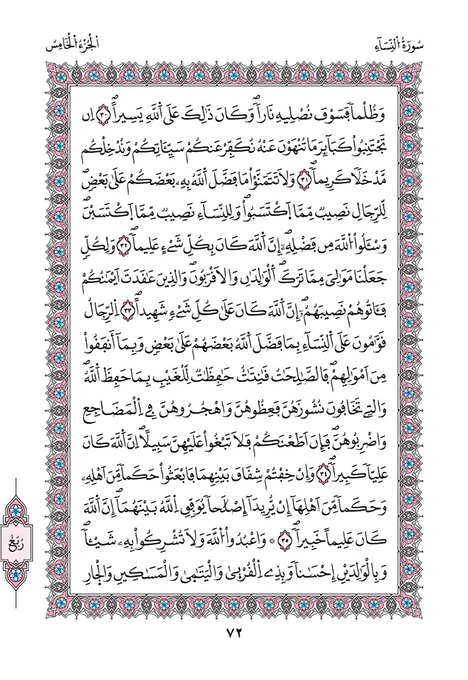 سُورَةُ اُلنِّسَآءِ
اَلْجُزْءُ اُلْخَامِسُ
وَظُلْماً فَسَوْفَ نُصْلِيهِ نَاراًۖ وَكَانَ ذَٰلِكَ عَلَى اَللَّهِ يَسِيراًۖ ٣٠ اِن
تَجْتَنِبُواْ كَبَآئِرَ مَا تُنْهَوْنَ عَنْهُ نُكَفِّرْ عَنكُمْ سَيِّـَٔاتِكُمْ وَنُدْخِلْكُم
مَّدْخَلاً كَرِيماًۖ ٣١ وَلَا تَتَمَنَّوْاْ مَا فَضَّلَ اَللَّهُ بِهِۦ بَعْضَكُمْ عَلَىٰ بَعْضٖۖ
لِّلرِّجَالِ نَصِيبٞ مِّمَّا اَكْتَسَبُواْۖ وَلِلنِّسَآءِ نَصِيبٞ مِّمَّا اَكْتَسَبْنَۖ
وَسْـَٔلُواْ اُللَّهَ مِن فَضْلِهِۦٓۖ إِنَّ اَللَّهَ كَانَ بِكُلِّ شَےْءٍ عَلِيماًۖ ٣٢ وَلِكُلّٖ
جَعَلْنَا مَوَٰلِيَ مِمَّا تَرَكَ اَلْوَٰلِدَٰنِ وَالَاقْرَبُونَۖ وَالذِينَ عَٰقَدَتَ اَيْمَٰنُكُمْ
فَـَٔاتُوهُمْ نَصِيبَهُمُۥٓۖ إِنَّ اَللَّهَ كَانَ عَلَىٰ كُلِّ شَےْءٖ شَهِيداًۖ ٣٣ اِلرِّجَالُ
قَوَّٰمُونَ عَلَى اَلنِّسَآءِ بِمَا فَضَّلَ اَللَّهُ بَعْضَهُمْ عَلَىٰ بَعْضٖ وَبِمَآ أَنفَقُواْ
مِنَ اَمْوَٰلِهِمْۖ فَالصَّٰلِحَٰتُ قَٰنِتَٰتٌ حَٰفِظَٰتٞ لِّلْغَيْبِ بِمَا حَفِظَ اَللَّهُۖ
وَالتِے تَخَافُونَ نُشُوزَهُنَّ فَعِظُوهُنَّ وَاهْجُرُوهُنَّ فِے اِلْمَضَاجِعِ
وَاضْرِبُوهُنَّۖ فَإِنَ اَطَعْنَكُمْ فَلَا تَبْغُواْ عَلَيْهِنَّ سَبِيلًاۖ اِنَّ اَللَّهَ كَانَ
عَلِيّاٗ كَبِيراًۖ ٣٤ وَإِنْ خِفْتُمْ شِقَاقَ بَيْنِهِمَا فَابْعَثُواْ حَكَماٗ مِّنَ اَهْلِهِۦ
وَحَكَماٗ مِّنَ اَهْلِهَآ إِنْ يُّرِيدَآ إِصْلَٰحاٗ يُوَفِّقِ اِللَّهُ بَيْنَهُمَآۖ إِنَّ اَللَّهَ
كَانَ عَلِيماً خَبِيراًۖ ٣٥ ۞ وَاعْبُدُواْ اُللَّهَ وَلَا تُشْرِكُواْ بِهِۦ شَيْـٔاٗۖ
وَبِالْوَٰلِدَيْنِ إِحْسَٰناٗ وَبِذِے اِلْقُرْبَىٰ وَالْيَتَٰمَىٰ وَالْمَسَٰكِينِ وَالْجَارِ
رُبُع
٧٢